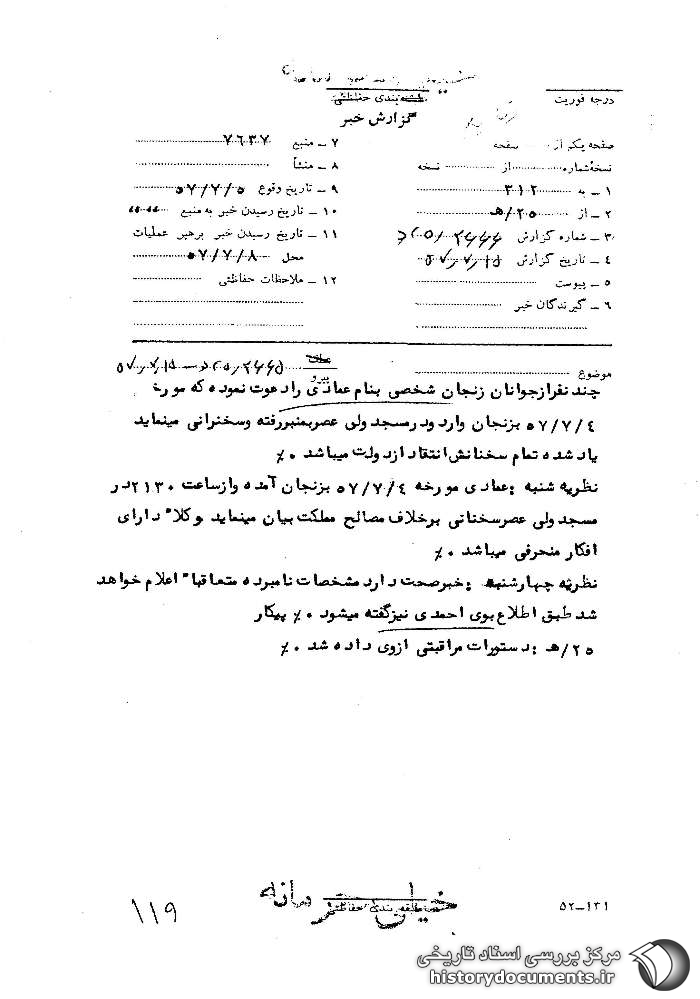 طبقه بندی حفاظتی
درجه فوریت
گزارش خبر
صفحه یک از ...... صفحه
۷ ـ منبع ۷۶۳۷
نسخه شماره ........ از ........ نسخه
۸ ـ منشأ
۱ ـ به ۳۱۲
۹ ـ تاریخ وقوع ۵۷/۷/۵
۲ ـ از ۲۵/هـ
۱۰ ـ تاریخ رسیدن خبر به منبع
۳ ـ شماره گزارش
۱۱ ـ تاریخ رسیدن خبر برهبر عملیات
۴ ـ تاریخ گزارش
محل ۵۷/۷/۸
۵ ـ پیوست
۱۲ ـ ملاحظات حفاظتی
۶ ـ گیرندگان خبر
موضوع
پیرو
چند نفر از جوانان زنجان شخصی بنام عمادی را دعوت نموده که مورخه
۵۷/۷/۴ بزنجان وارد و در مسجد ولی عصر بمنبر رفته و سخنرانی مینماید
یاد شده تمام سخنانش انتقاد از دولت میباشد ٪
نظریه شنبه : عمادی مورخه ۵۷/۷/۴ بزنجان آمده و از ساعت ۲۱۳۰ در
مسجد ولی عصر سخنانی برخلاف مصالح مملکت بیان مینماید و کلاً دارای
افکار منحرفی میباشد ٪
نظریه چهارشنبه : خبر صحت دارد مشخصات نامبرده متعاقباً اعلام خواهد
شد طبق اطلاع بوی احمدی نیز گفته میشود ٪ پیکار
۲۵/هـ : دستورات مراقبتی از وی داده شد ٪
خیلی محرمانه
طبقه بندی حفاظتی
۱۱۹
۵۲-۱۳۱
مرکز بررسی اسناد تاریخی
historydocuments.ir